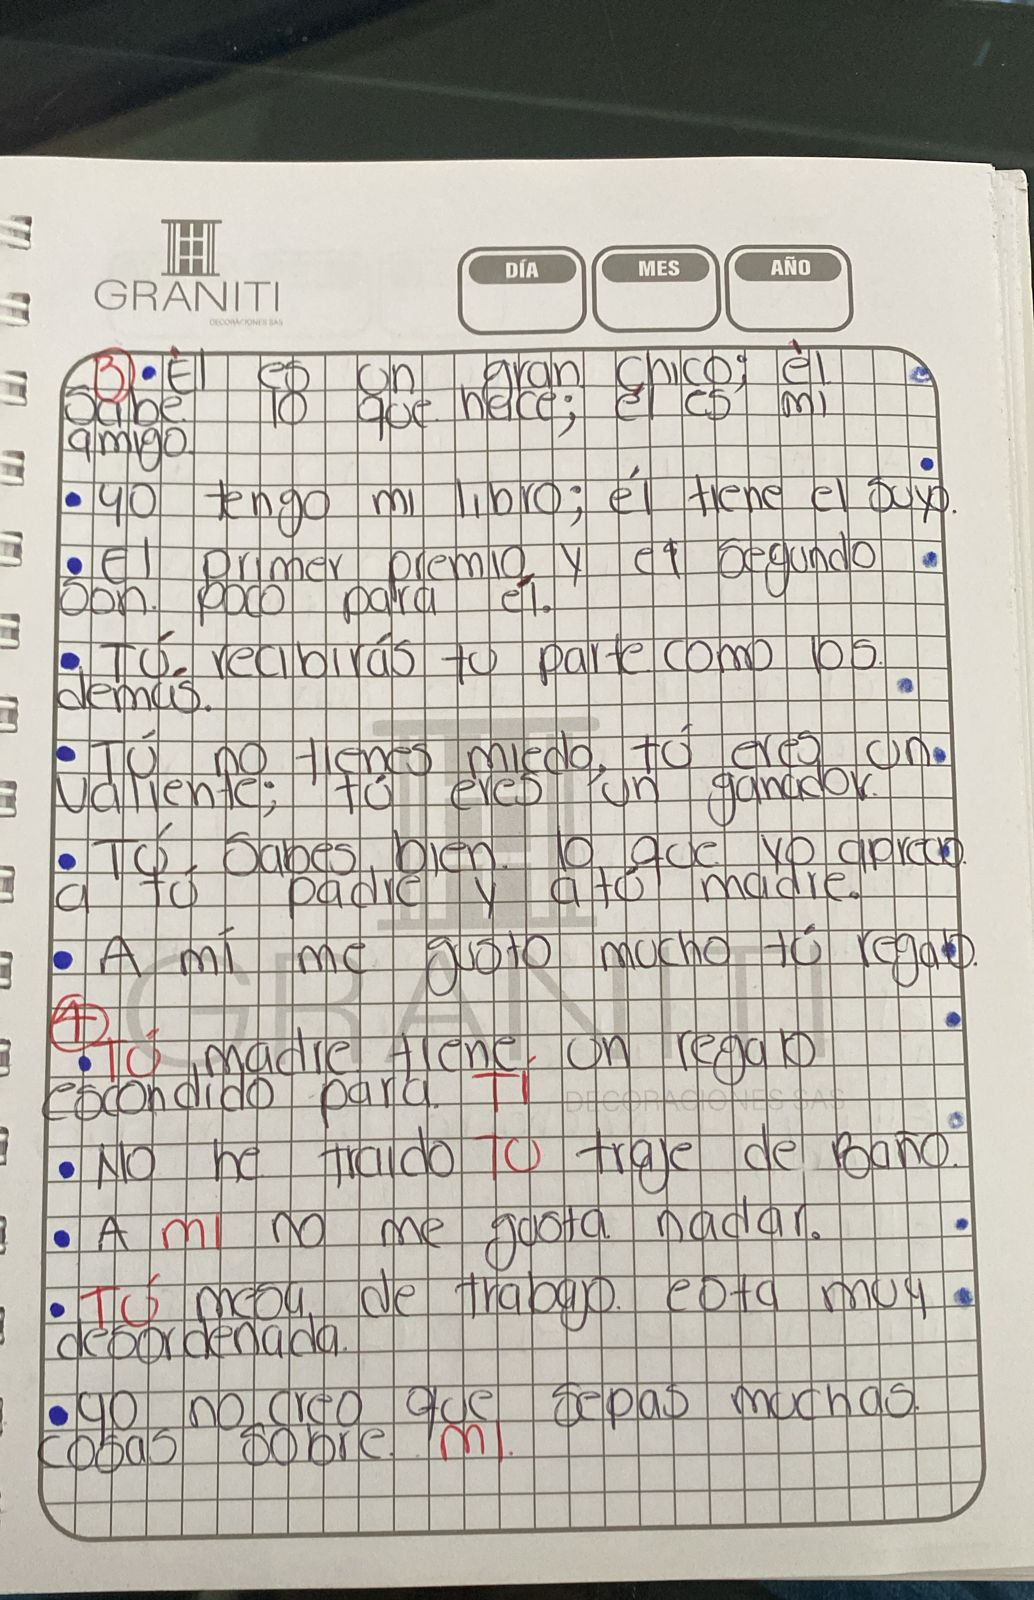 GRANITI
DECORACIONES SAS
DÍA MES AÑO
3 • Él es un gran chico; él
sabe lo que hace; él es mi
amigo.
• yo tengo mi libro; él tiene el suyo.
• El primer premio y el segundo
son poco para él.
• Tú recibirás tu parte como los
demás.
• Tú no tienes miedo, tú eres un
valiente; tú eres un ganador.
• Tú sabes bien lo que yo aprecio
a tú padre y a tú madre.
• A mí me gusto mucho tú regalo.
4
• TÚ madre tiene un regalo
escondido para TI
• No he traido TU traje de Baño.
• A mI no me gusta nadar.
• TÚ mesa de trabajo esta muy
desordenada.
• yo no creo que sepas muchas
cosas sobre mI.
GRANITI
DECORACIONES SAS